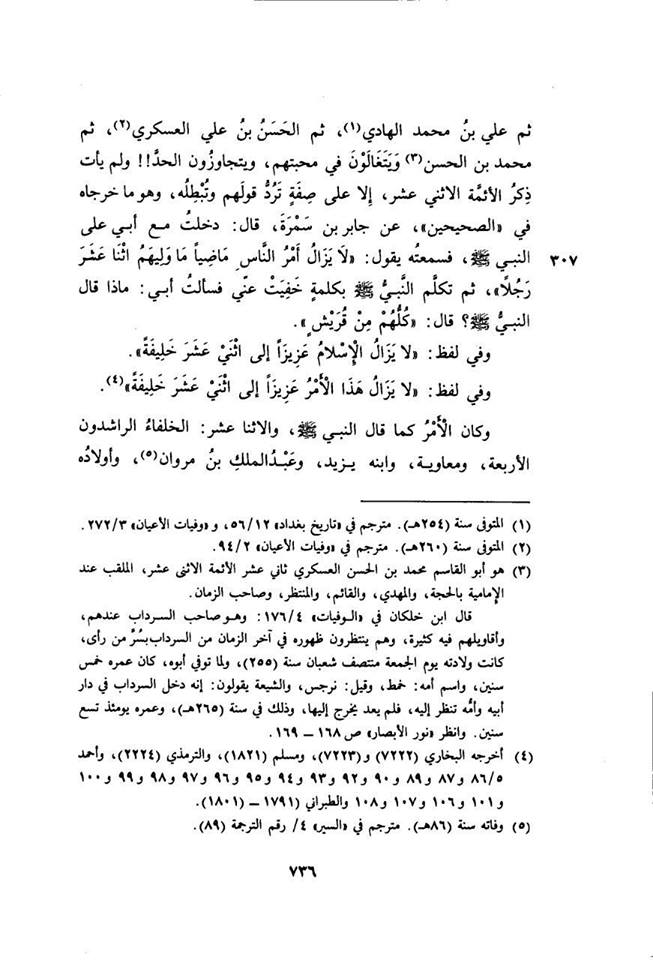 ثم علي بنُ محمد الهادي(١)، ثم الحَسَنُ بنُ علي العسكري(٢)، ثم
محمد بن الحسن(٣) وَيَتَغَالَوْنَ في محبتهم، ويتجاوزُون الحدَّ!! ولم يأت
ذِكرُ الأئمَّة الاثني عشر، إلا على صِفَةٍ تَرُدُّ قولَهم وتُبْطِلُه، وهو ما خرجاه
في «الصحيحين»، عن جابر بن سَمُرَةَ، قال: دخلتُ مع أبي على
النبي ﷺ، فسمعتُه يقول: «لَا يَزَالُ أَمْرُ النَّاسِ مَاضِياً مَا وَلِيَهُمُ اثْنَا عَشَرَ
٣٠٧
رَجُلًا»، ثم تكلَّم النَّبيُّ ﷺ بكلمةٍ خَفِيَتْ عنّي فسألتُ أبي: ماذا قال
النبيُّ ﷺ؟ قال: «كُلُّهُمْ مِنْ قُرَيْشٍ».
وفي لفظ: «لا يَزَالُ الْإِسْلامُ عَزِيزَاً إلى اثْنَيْ عَشَرَ خَلِيفَةً».
وفي لفظ: «لا يَزَالُ هَذَا الْأَمْرُ عَزِيزَاً إلى اثْنَيْ عَشَرَ خَلِيفَةً»(٤).
وكان الْأَمْرُ كما قال النبي ﷺ، والاثنا عشر: الخلفاءُ الراشدون
الأربعة، ومعاوية، وابنه يزيد، وعَبْدُ الملكِ بنُ مروان(٥)، وأولادُه
(١) المتوفى سنة (٢٥٤هـ). مترجم في «تاريخ بغداد» ٥٦/١٢، و«وفيات الأعيان» ٢٧٢/٣.
(٢) المتوفى سنة (٢٦٠هـ). مترجم في «وفيات الأعيان» ٩٤/٢.
(٣) هو أبو القاسم محمد بن الحسن العسكري ثاني عشر الأئمة الاثنى عشر، الملقب عند
الإمامية بالحجة، والمهدي، والقائم، والمنتظر، وصاحب الزمان.
قال ابن خلكان في «الوفيات» ١٧٦/٤: وهو صاحب السرداب عندهم،
وأقاويلهم فيه كثيرة، وهم ينتظرون ظهوره في آخر الزمان من السرداب بسُرَّ من رأى،
كانت ولادته يوم الجمعة منتصف شعبان سنة (٢٥٥)، ولما توفي أبوه، كان عمره خمس
سنين، واسم أمه: خمط، وقيل: نرجس، والشيعة يقولون: إنه دخل السرداب في دار
أبيه وأمُّه تنظر إليه، فلم يعد يخرج إليها، وذلك في سنة (٢٦٥هـ)، وعمره يومئذ تسع
سنين. وانظر «نور الأبصار» ص ١٦٨ – ١٦٩.
(٤) أخرجه البخاري (٧٢٢٢) و (٧٢٢٣)، ومسلم (١٨٢١)، والترمذي (٢٢٢٤)، وأحمد
٨٦/٥ و ٨٧ و ٨٩ و ٩٠ و ٩٢ و ٩٣ و ٩٤ و ٩٥ و ٩٦ و ٩٧ و ٩٨ و ٩٩ و ١٠٠
و ١٠١ و ١٠٦ و ١٠٧ و ١٠٨ والطبراني (١٧٩١ – ١٨٠١).
(٥) وفاته سنة (٨٦هـ). مترجم في «السير» ٤/ رقم الترجمة (٨٩).
٧٣٦